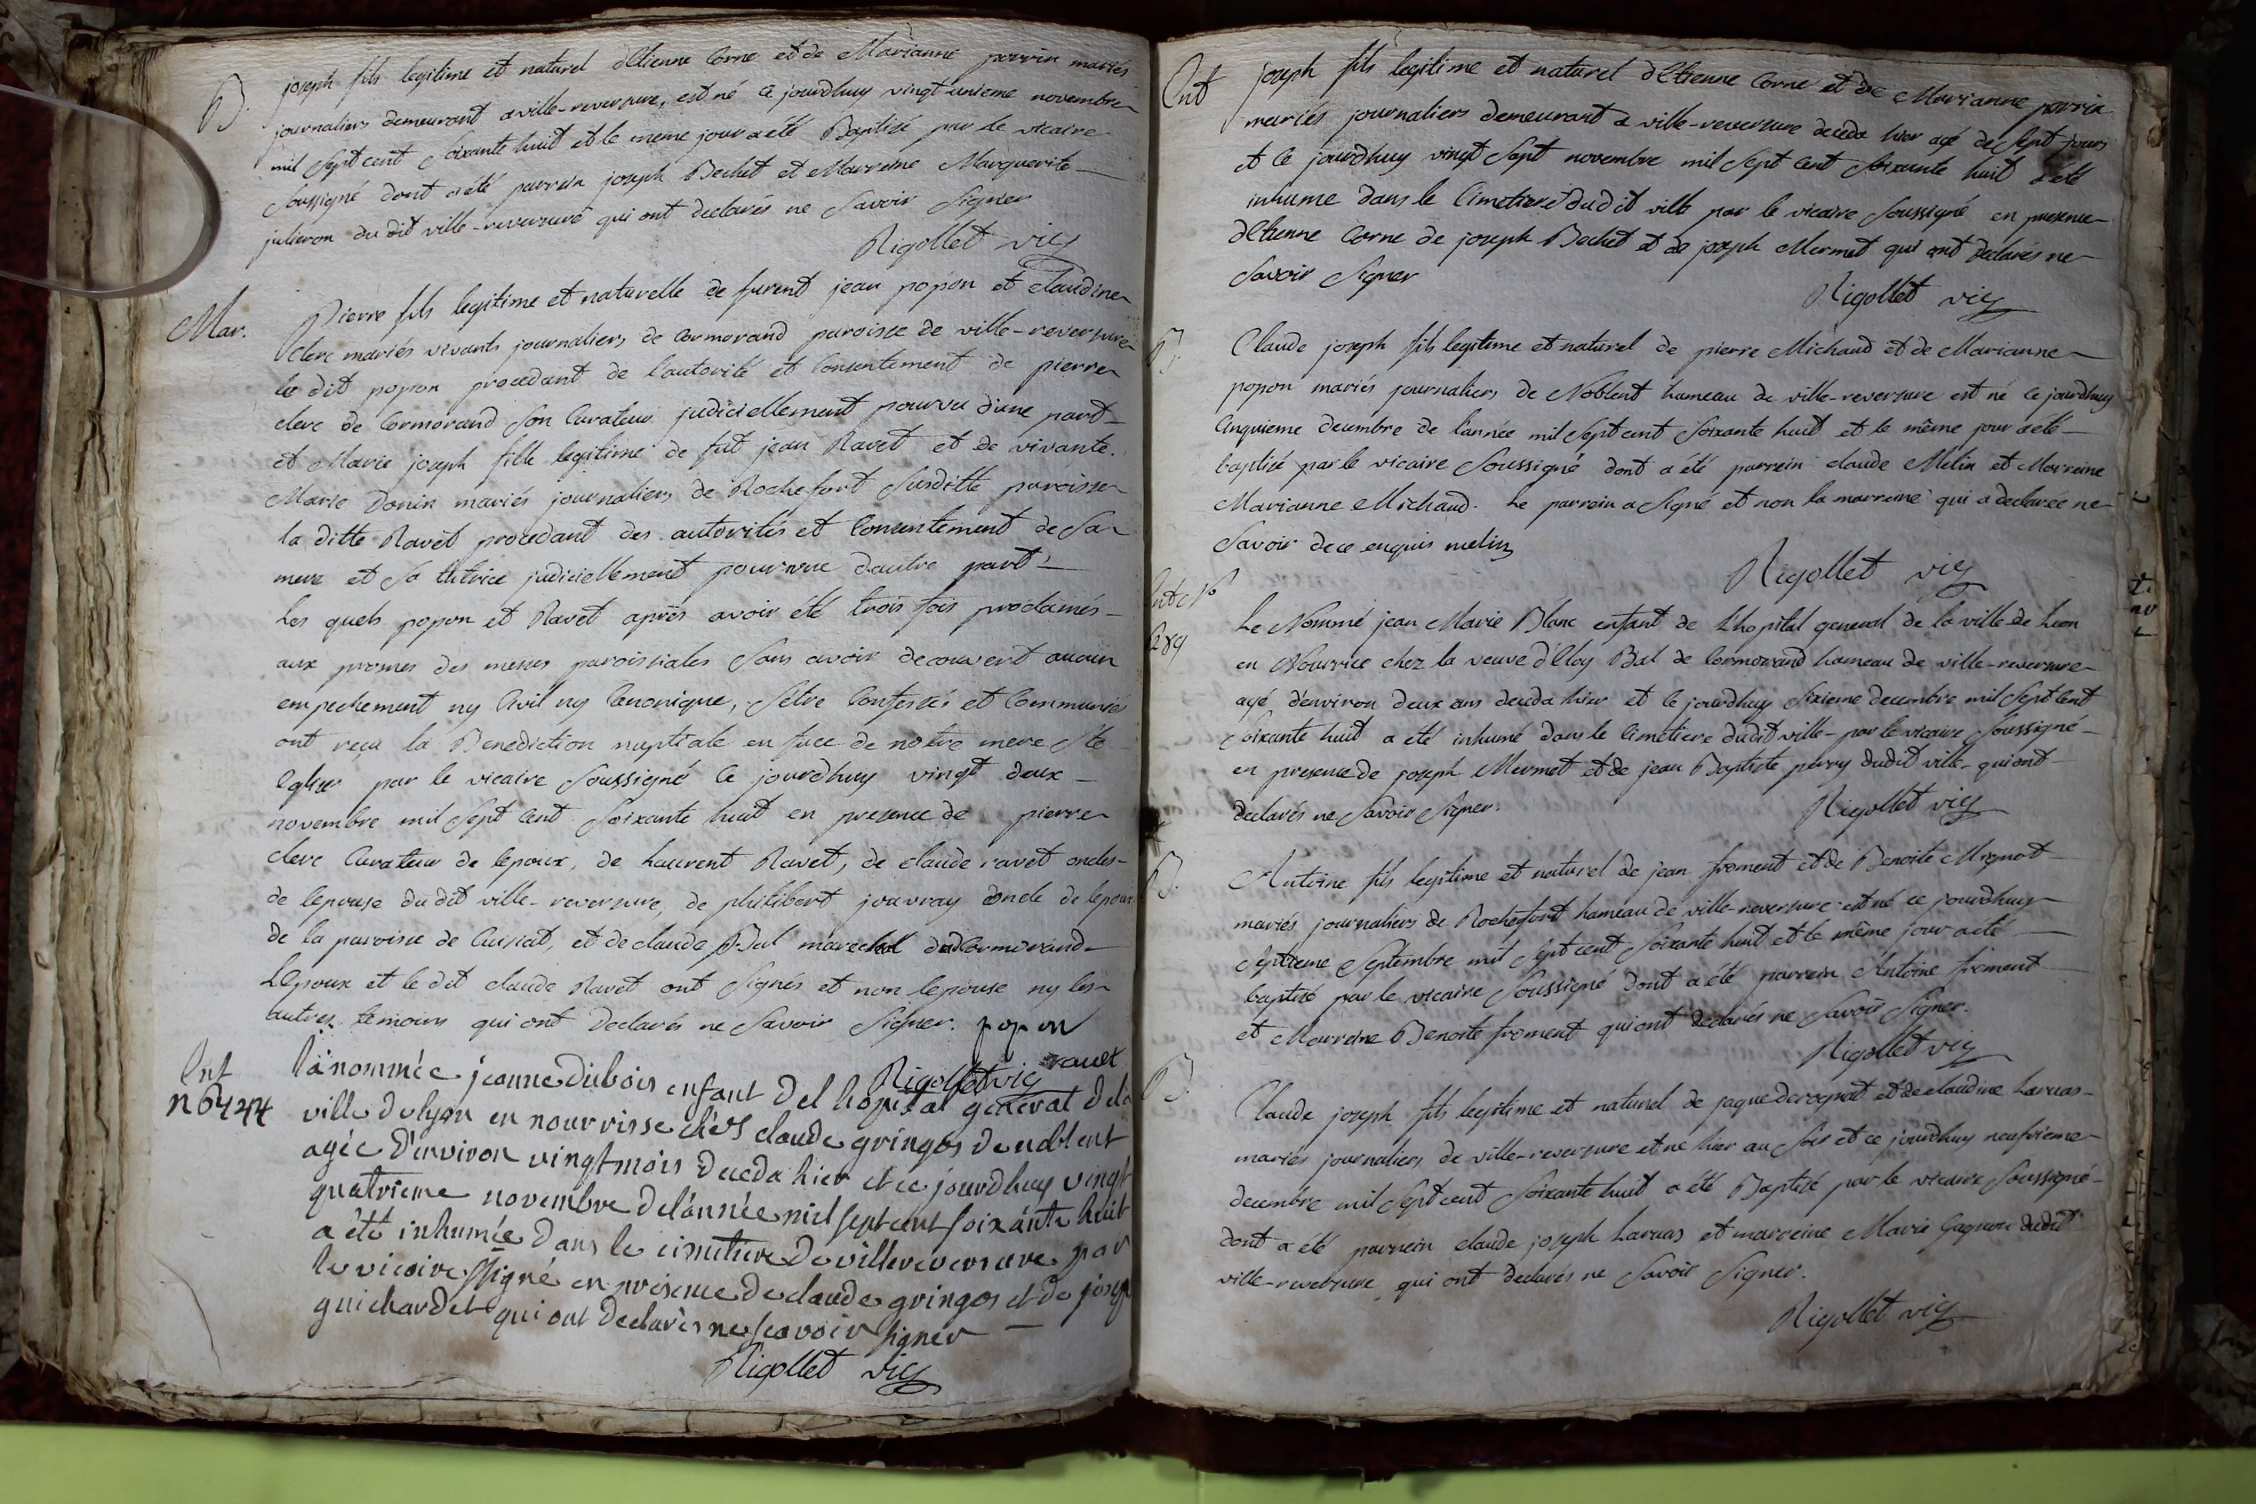 B. joseph fils legitime et naturel d'Etienne Corne et de Marianne perrin mariés
journaliers demeurant a ville-reversure, est né ce jourdhuy vingt unieme novembre
mil sept cent soixante huit et le meme jour a été Baptisé par le vicaire
soussigné dont a été parrein joseph Bechet et Marreine Marguerite
julieron du dit ville-reversure qui ont declarés ne savoir signer
Rigollet vic
Mar. Pierre fils legitime et naturelle de furent jean popon et Claudine
clerc mariés vivants journaliers de Cormorand paroisse de ville-reversure
le dit popon procedant de l'autorité et Consentement de pierre
clerc de Cormorand son Curateur judiciellement pourvu d'une part
et Marie joseph fille legitime de fut jean Ravet et de vivante
Marie Donin mariés journaliers de Rochefort susditte paroisse
la ditte Ravet procedant des autorités et Consentement de sa
mere et sa tutrice judiciellement pourvue d'autre part
Les quels popon et Ravet après avoir été trois fois proclamés
aux prones des messes paroissiales sans avoir decouvert aucun
empechement ny Civil ny Canonique, s'etre Confessés et Communié
ont reçu la Benediction nuptiale en face de notre mere Ste
Eglise par le vicaire soussigné ce jourdhuy vingt deux
novembre mil sept cent soixante huit en presence de pierre
clerc Curateur de lepoux, de Laurent Ravet, de claude ravet oncles
de lepouse du dit ville-reversure, de philibert jouvray oncle de lepoux
de la paroisse de Cuisiat, et de claude Bal maréchal de Cormorand
L'Epoux et le dit claude Ravet ont signés et non lepouse ny les
autres temoins qui ont declarés ne savoir signer. popon
ravet
Rigollet vic
Ent lanommée jeanne dubois enfant del hopital general dela
n 6424 ville de lyon en nourrisse chés claude gringos de noblent
agée d'environ vingt mois deceda hier et ce jourdhuy vingt
quatrieme novembre delannée mil sept cent soixante huit
a été inhumée dans le cimetiere de villereversure par
le vicaire ssigné en presence de claude gringos et de joseph
guichardet qui ont declarés ne scavoir signer
Rigollet vic
Ent joseph fils legitime et naturel d'Etienne Corne et de Marianne perrin
mariés journaliers demeurant a ville-reversure deceda hier agé de sept jours
et ce jourdhuy vingt sept novembre mil sept cent soixante huit a été
inhumé dans le Cimetiere dudit ville par le vicaire soussigné en presence
d'Etienne Corne de joseph Bechet et de joseph Mermet qui ont declarés ne
savoir signer
Rigollet vic
B. Claude joseph fils legitime et naturel de pierre Michaud et de Marianne
popon mariés journaliers de Noblent hameau de ville-reversure est né ce jourdhuy
Cinquieme decembre de l'année mil sept cent soixante huit et le même jour a été
baptisé par le vicaire soussigné dont a été parrein claude Melin et Marreine
Marianne Michaud. Le parrein a signé et non la marreine qui a declarée ne
savoir de ce enquis melin
Rigollet vic
Le Nommé jean Marie Blanc enfant de Lhopital general de la ville de Lion
en Nourrice chez la veuve d'Eloy Bal de Cormorand hameau de ville-reversure
agé d'environ deux ans deceda hier et ce jourdhuy sixieme decembre mil sept cent
soixante huit a été inhumé dans le Cimetiere dudit ville par le vicaire soussigné
en presence de joseph Mermet et de jean Baptiste perry dudit ville qui ont
declarés ne savoir signer.
Rigollet vic
B. Antoine fils legitime et naturel de jean froment et de Benoite Mignot
mariés journaliers de Rochefort hameau de ville-reversure est né ce jourdhuy
septieme septembre mil sept cent soixante huit et le même jour a été
baptisé par le vicaire soussigné dont a été parrein Antoine froment
et Marreine Benoite froment qui ont declarés ne savoir signer.
Rigollet vic
B. Claude joseph fils legitime et naturel de jaque derognat et de claudine Laruas
mariés journaliers de ville-reversure est né hier au soir et ce jourdhuy neufvieme
decembre mil sept cent soixante huit a été Baptisé par le vicaire soussigné
dont a été parrein claude joseph Laruas et marreine Marie Gagneur dudit
ville-reversure qui ont declarés ne savoir signer.
Rigollet vic